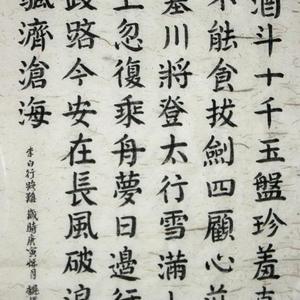 酒斗十千玉盤珍羞直
不能食拔劍四顧心茫
塞川將登太行雪滿山
上忽復乘舟夢日邊行
歧路今安在長風破浪
濟滄海
李白行路難 歲時庚寅月